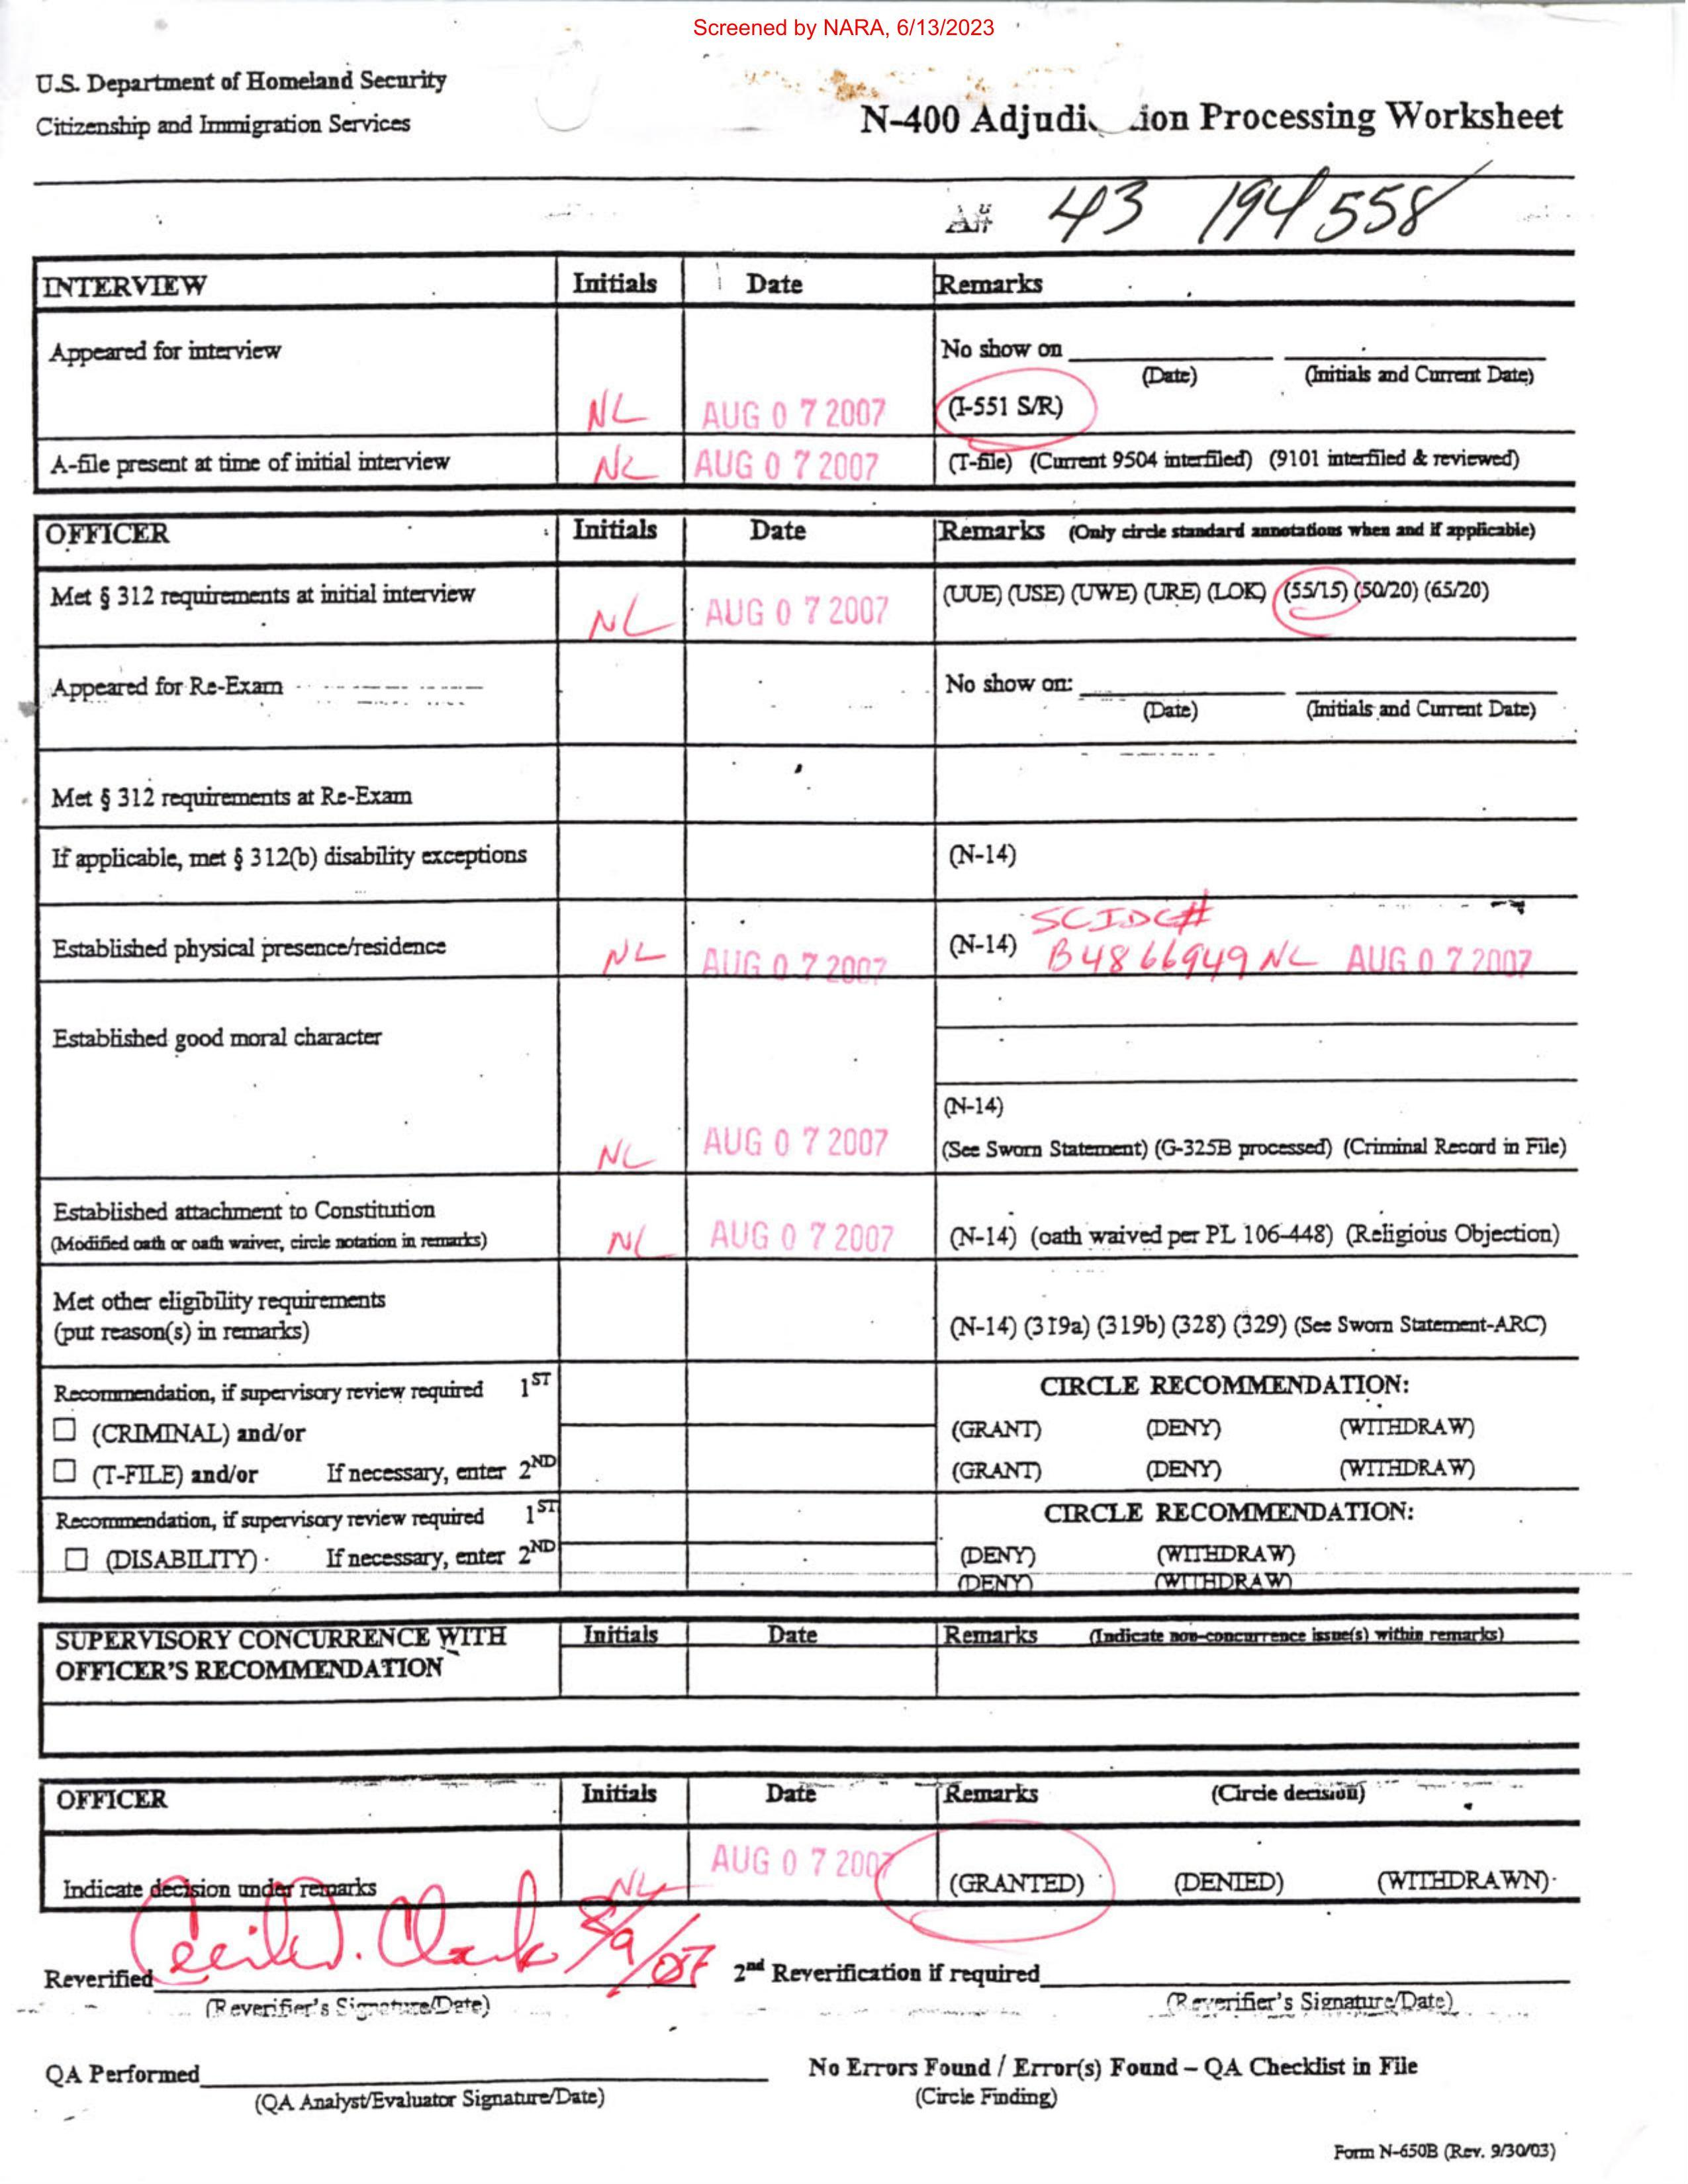 Screened by NARA, 6/13/2023
U.S. Department of Homeland Security
Citizenship and Immigration Services
N-400 Adjudi ion Processing Worksheet
A# 43 194 558
INTERVIEW Initials Date Remarks
Appeared for interview No show on
(Date) (Initials and Current Date)
NL AUG 07 2007 (I-551 S/R)
A-file present at time of initial interview NL AUG 07 2007 (T-file) (Current 9504 interfiled) (9101 interfiled & reviewed)
OFFICER Initials Date Remarks (Only circle standard annotations when and if applicable)
Met § 312 requirements at initial interview NL AUG 07 2007 (UUE) (USE) (UWE) (URE) (LOK) (55/15) (50/20) (65/20)
Appeared for Re-Exam No show on:
(Date) (Initials and Current Date)
Met § 312 requirements at Re-Exam
If applicable, met § 312(b) disability exceptions (N-14)
SCIDC#
Established physical presence/residence NL AUG 07 2007 (N-14) B4866949 NL AUG 07 2007
Established good moral character
(N-14)
NL AUG 07 2007 (See Sworn Statement) (G-325B processed) (Criminal Record in File)
Established attachment to Constitution
(Modified oath or oath waiver, circle notation in remarks) NL AUG 07 2007 (N-14) (oath waived per PL 106-448) (Religious Objection)
Met other eligibility requirements
(put reason(s) in remarks) (N-14) (319a) (319b) (328) (329) (See Sworn Statement-ARC)
Recommendation, if supervisory review required 1ST CIRCLE RECOMMENDATION:
(CRIMINAL) and/or (GRANT) (DENY) (WITHDRAW)
(T-FILE) and/or If necessary, enter 2ND (GRANT) (DENY) (WITHDRAW)
Recommendation, if supervisory review required 1ST CIRCLE RECOMMENDATION:
(DISABILITY) If necessary, enter 2ND (DENY) (WITHDRAW)
(DENY) (WITHDRAW)
SUPERVISORY CONCURRENCE WITH Initials Date Remarks (Indicate non-concurrence issue(s) within remarks)
OFFICER'S RECOMMENDATION
OFFICER Initials Date Remarks (Circle decision)
Indicate decision under remarks NL AUG 07 2007 (GRANTED) (DENIED) (WITHDRAWN)
Reverified Cecil D. Clark 8/9/07 2nd Reverification if required
(Reverifier's Signature/Date) (Reverifier's Signature/Date)
QA Performed No Errors Found / Error(s) Found – QA Checklist in File
(QA Analyst/Evaluator Signature/Date) (Circle Finding)
Form N-650B (Rev. 9/30/03)